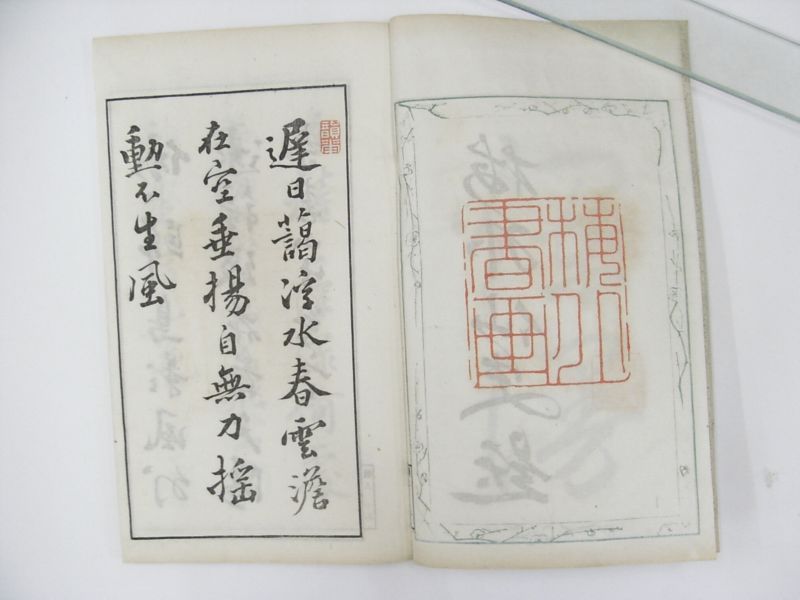 梅
書画
遲日藹浮水春雲澹
在空垂楊自無力搖
動不生風